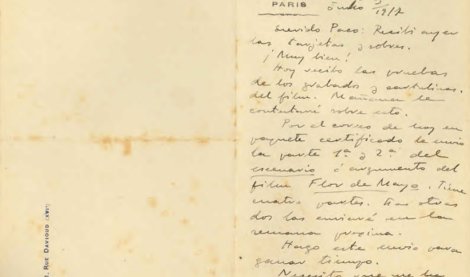 PARIS
Junio 5/1917
Querido Paco: Recibí ayer
las tarjetas y sobres.
¡Muy bien!
Hoy recibo las pruebas
de los grabados y cartulinas
del film. Mañana le
contestaré sobre esto.
Por el correo de hoy en
paquete certificado le envío
la parte 1ª y 2ª del
escenario ó argumento del
film Flor de Mayo. Tiene
cuatro partes. Las otras
dos las enviaré en la
semana próxima.
Hago este envío para
ganar tiempo.
Necesito que me
RUE DAVIOUD (XVI)